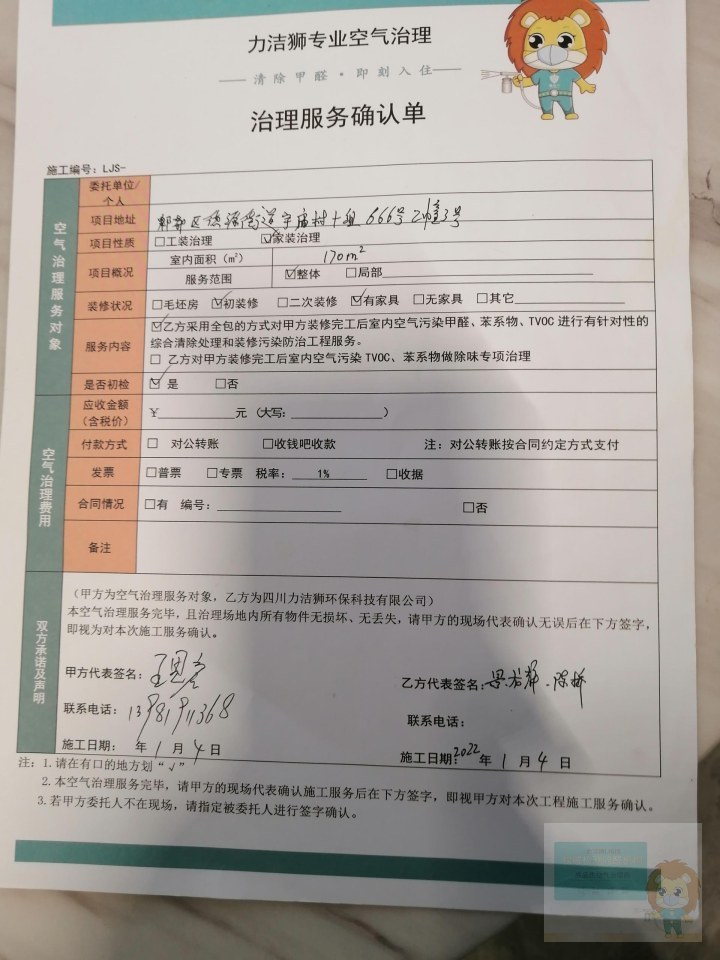 力洁狮专业空气治理
—— 清除甲醛·即刻入住 ——
治理服务确认单
施工编号：LJS-
空气治理服务对象
委托单位/个人
项目地址 郫都区德源街道宇庙村十组666号2幢3号
项目性质 □工装治理 ☑家装治理
项目概况 室内面积（m²） 170m²
服务范围 ☑整体 □局部
装修状况 □毛坯房 ☑初装修 □二次装修 ☑有家具 □无家具 □其它
服务内容 ☑乙方采用全包的方式对甲方装修完工后室内空气污染甲醛、苯系物、TVOC 进行有针对性的
综合清除处理和装修污染防治工程服务。
□ 乙方对甲方装修完工后室内空气污染 TVOC、苯系物做除味专项治理
是否初检 ☑ 是 □否
空气治理费用
应收金额（含税价） ¥ 元（大写： ）
付款方式 □ 对公转账 □收钱吧收款 注：对公转账按合同约定方式支付
发票 □普票 □专票 税率： 1% □收据
合同情况 □有 编号： □否
备注
双方承诺及声明
（甲方为空气治理服务对象，乙方为四川力洁狮环保科技有限公司）
本空气治理服务完毕，且治理场地内所有物件无损坏、无丢失，请甲方的现场代表确认无误后在下方签字，
即视为对本次施工服务确认。
甲方代表签名：
乙方代表签名：
联系电话：13981911368
联系电话：
施工日期： 年 1 月 4 日
施工日期：2022 年 1 月 4 日
注：1.请在有口的地方划“√”
2.本空气治理服务完毕，请甲方的现场代表确认施工服务后在下方签字，即视甲方对本次工程施工服务确认。
3.若甲方委托人不在现场，请指定被委托人进行签字确认。